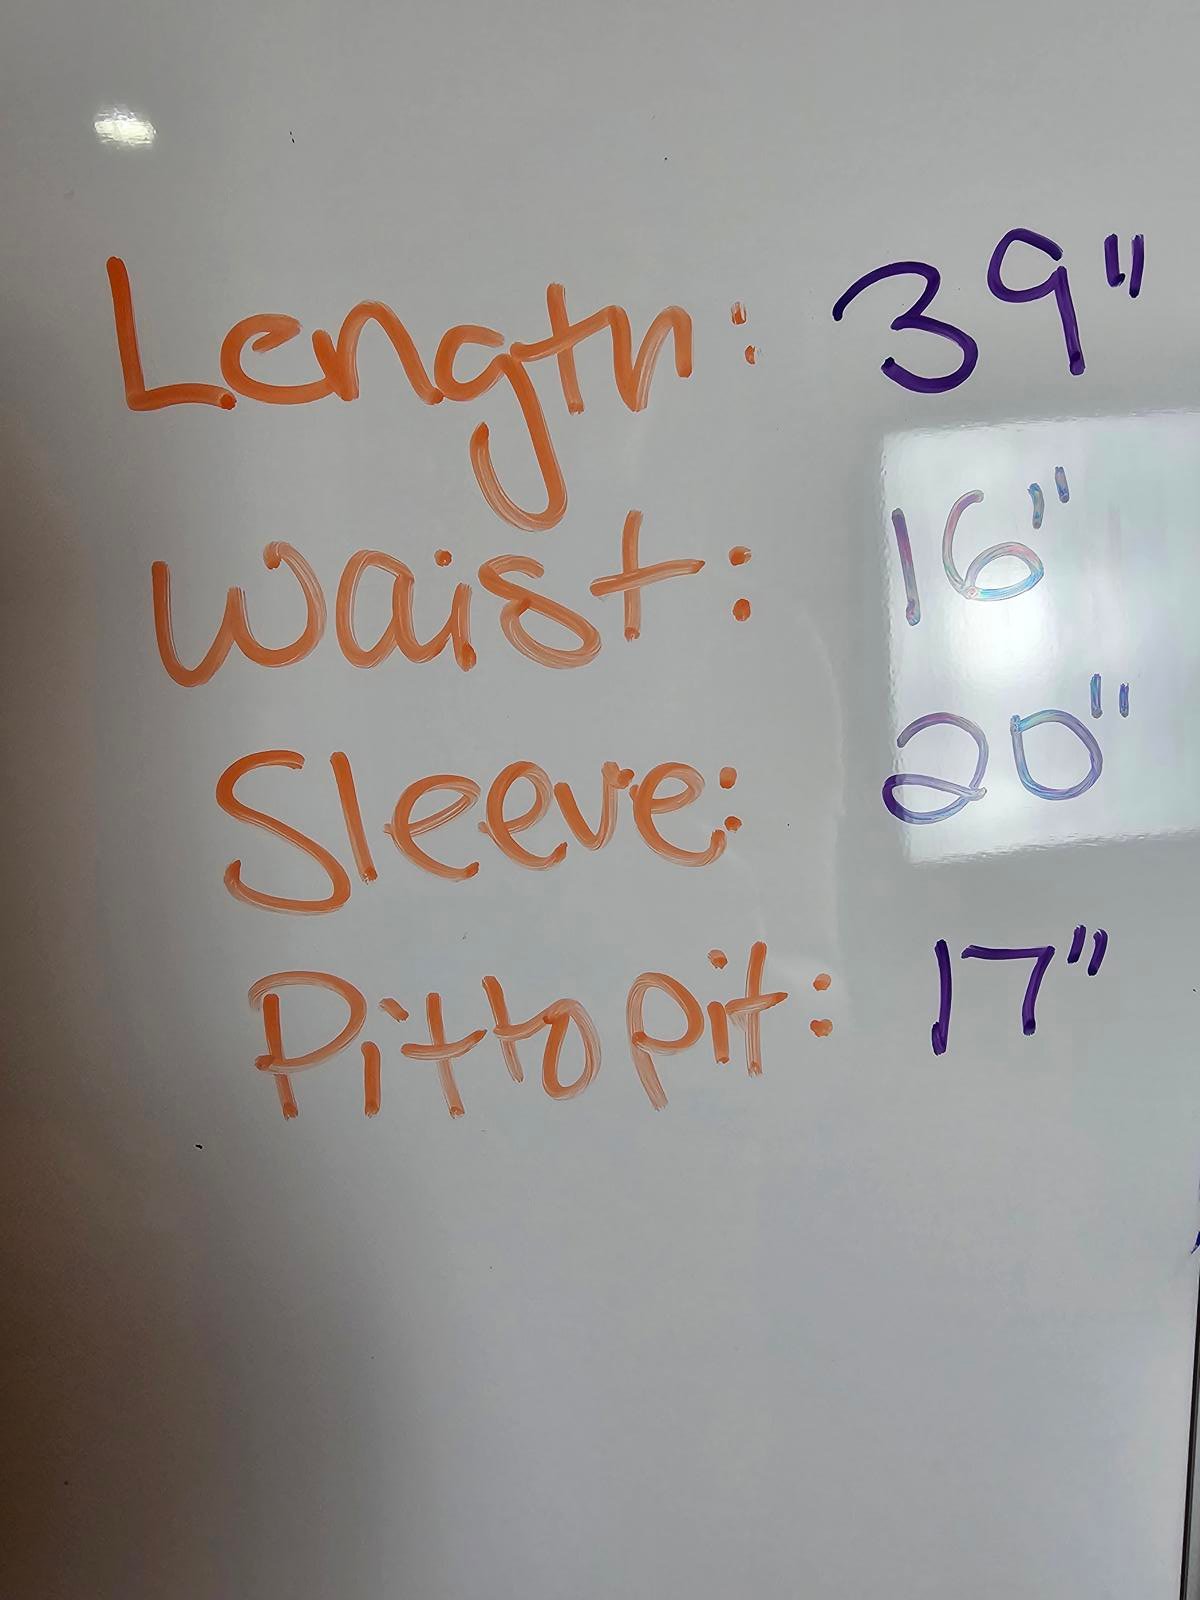 Length: 39"
Waist: 16"
Sleeve: 20"
Pit to pit: 17"